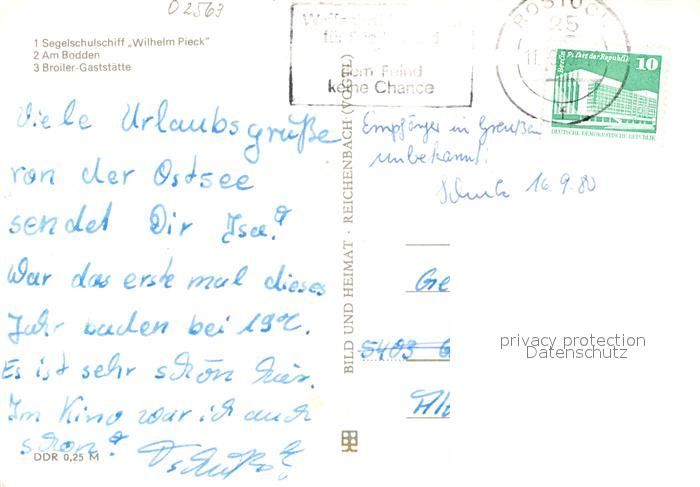 D 2563
1 Segelschulschiff „Wilhelm Pieck"
2 Am Bodden
3 Broiler-Gaststätte
Viele Urlaubsgrüße
von der Ostsee
sendet Dir Isa.
War das erste mal dieses
Jahr baden bei 19°C.
Es ist sehr schön hier.
Im Kino war ich auch
schon.
DDR 0,25 M
BILD UND HEIMAT · REICHENBACH (VOGTL)
dem Feind
keine Chance
ROSTOCK
25
11.
Palast der Republik
10
DEUTSCHE DEMOKRATISCHE REPUBLIK
Empfänger in Greußen
unbekannt!
16.9.80
Ge
5403 G
privacy protection
Datenschutz